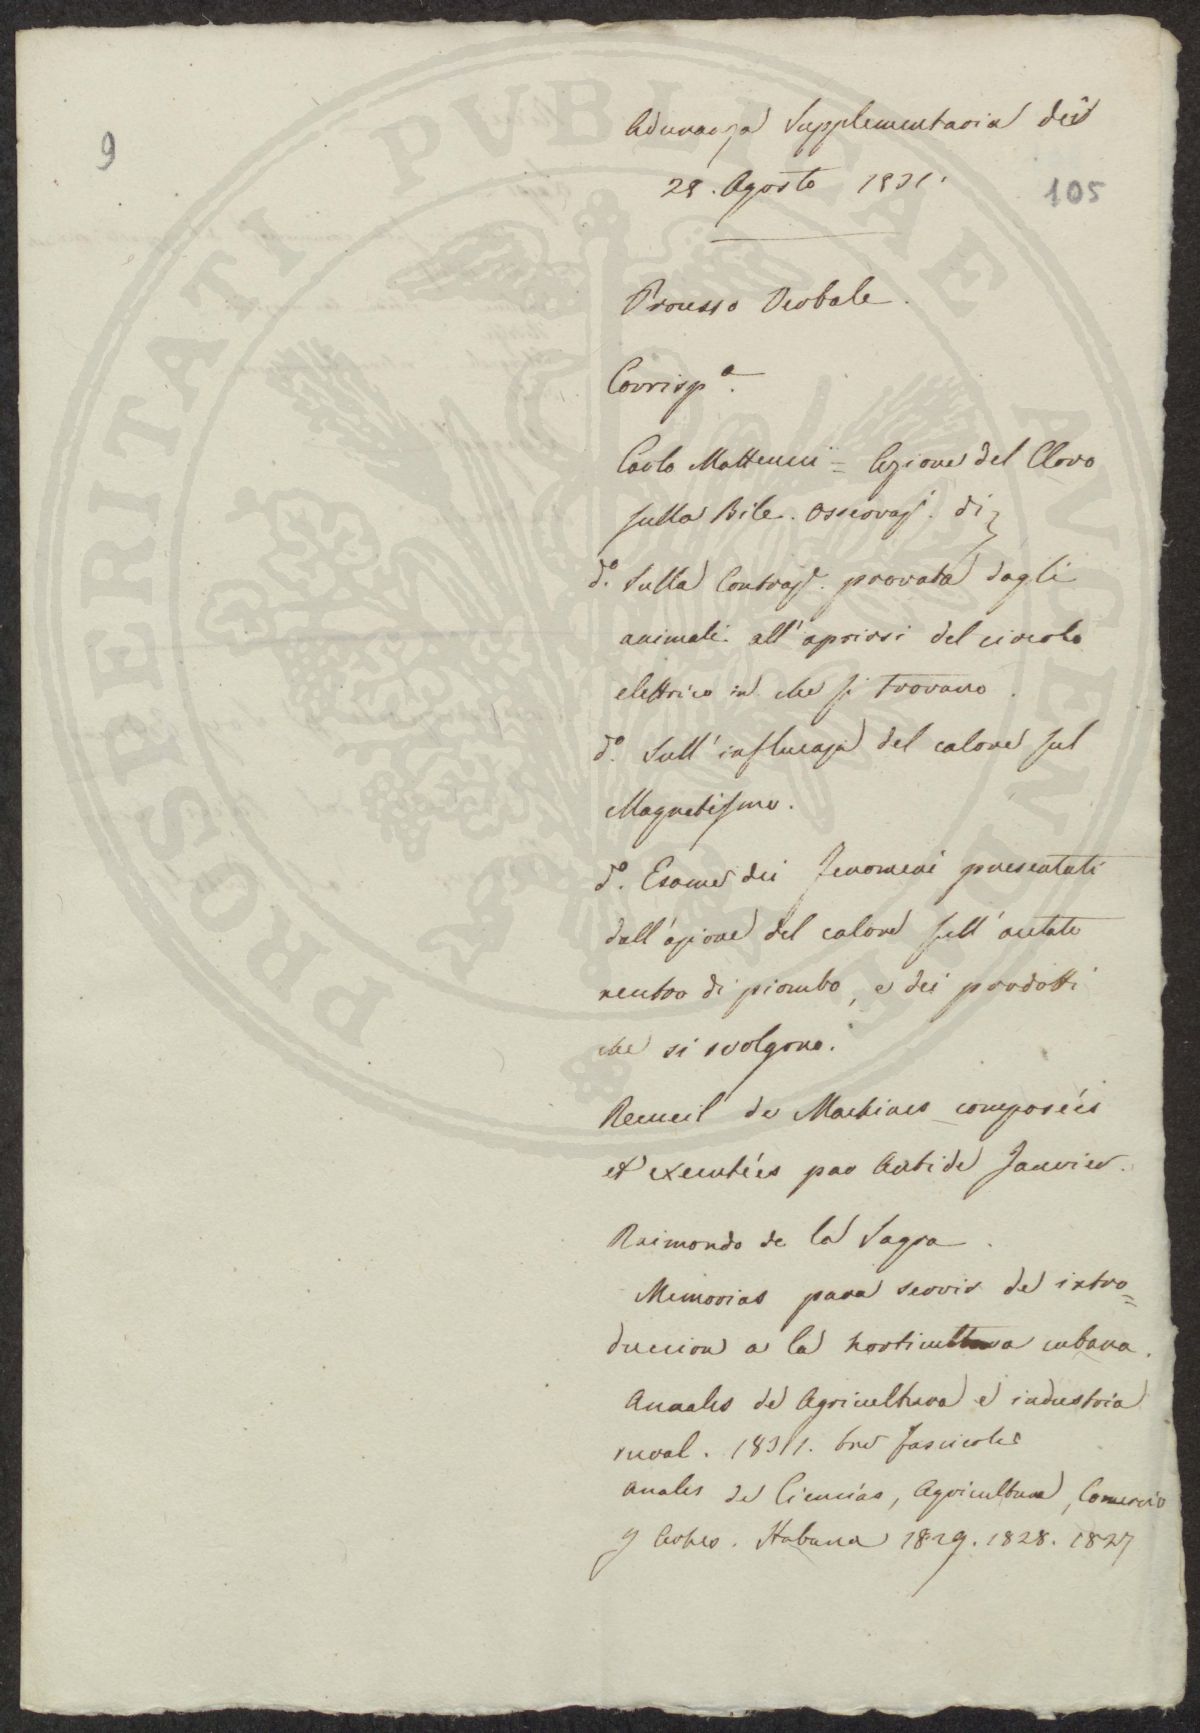 9
Adunanza Supplementaria dei
28. Agosto 1831.
105
Processo Verbale.
Corrisp.a
Carlo Matteucci = Azione del Cloro
sulla Bile. Osservaz. di
do. Sulla Contraz. provata dagli
animali all'aprirsi del circolo
elettrico in che si trovano.
do. Sull'influenza del calore sul
Magnetismo.
do. Esame dei fenomeni presentati
dall'azione del calore sull'acetato
neutro di piombo, e dei prodotti
che si svolgono.
Recueil de Machines composées
et exécutées par Antide Janvier.
Raimondo de la Sagra.
Memorias para servir de intro=
duccion a la horticultura cubana.
Annales de Agricultura e industria
rural. 1831. tre fascicoli
Anales de Ciencias, Agricultura, Comercio
y Artes. Habana 1829. 1828. 1827
PROSPERITATI PVBLICAE AVGENDAE